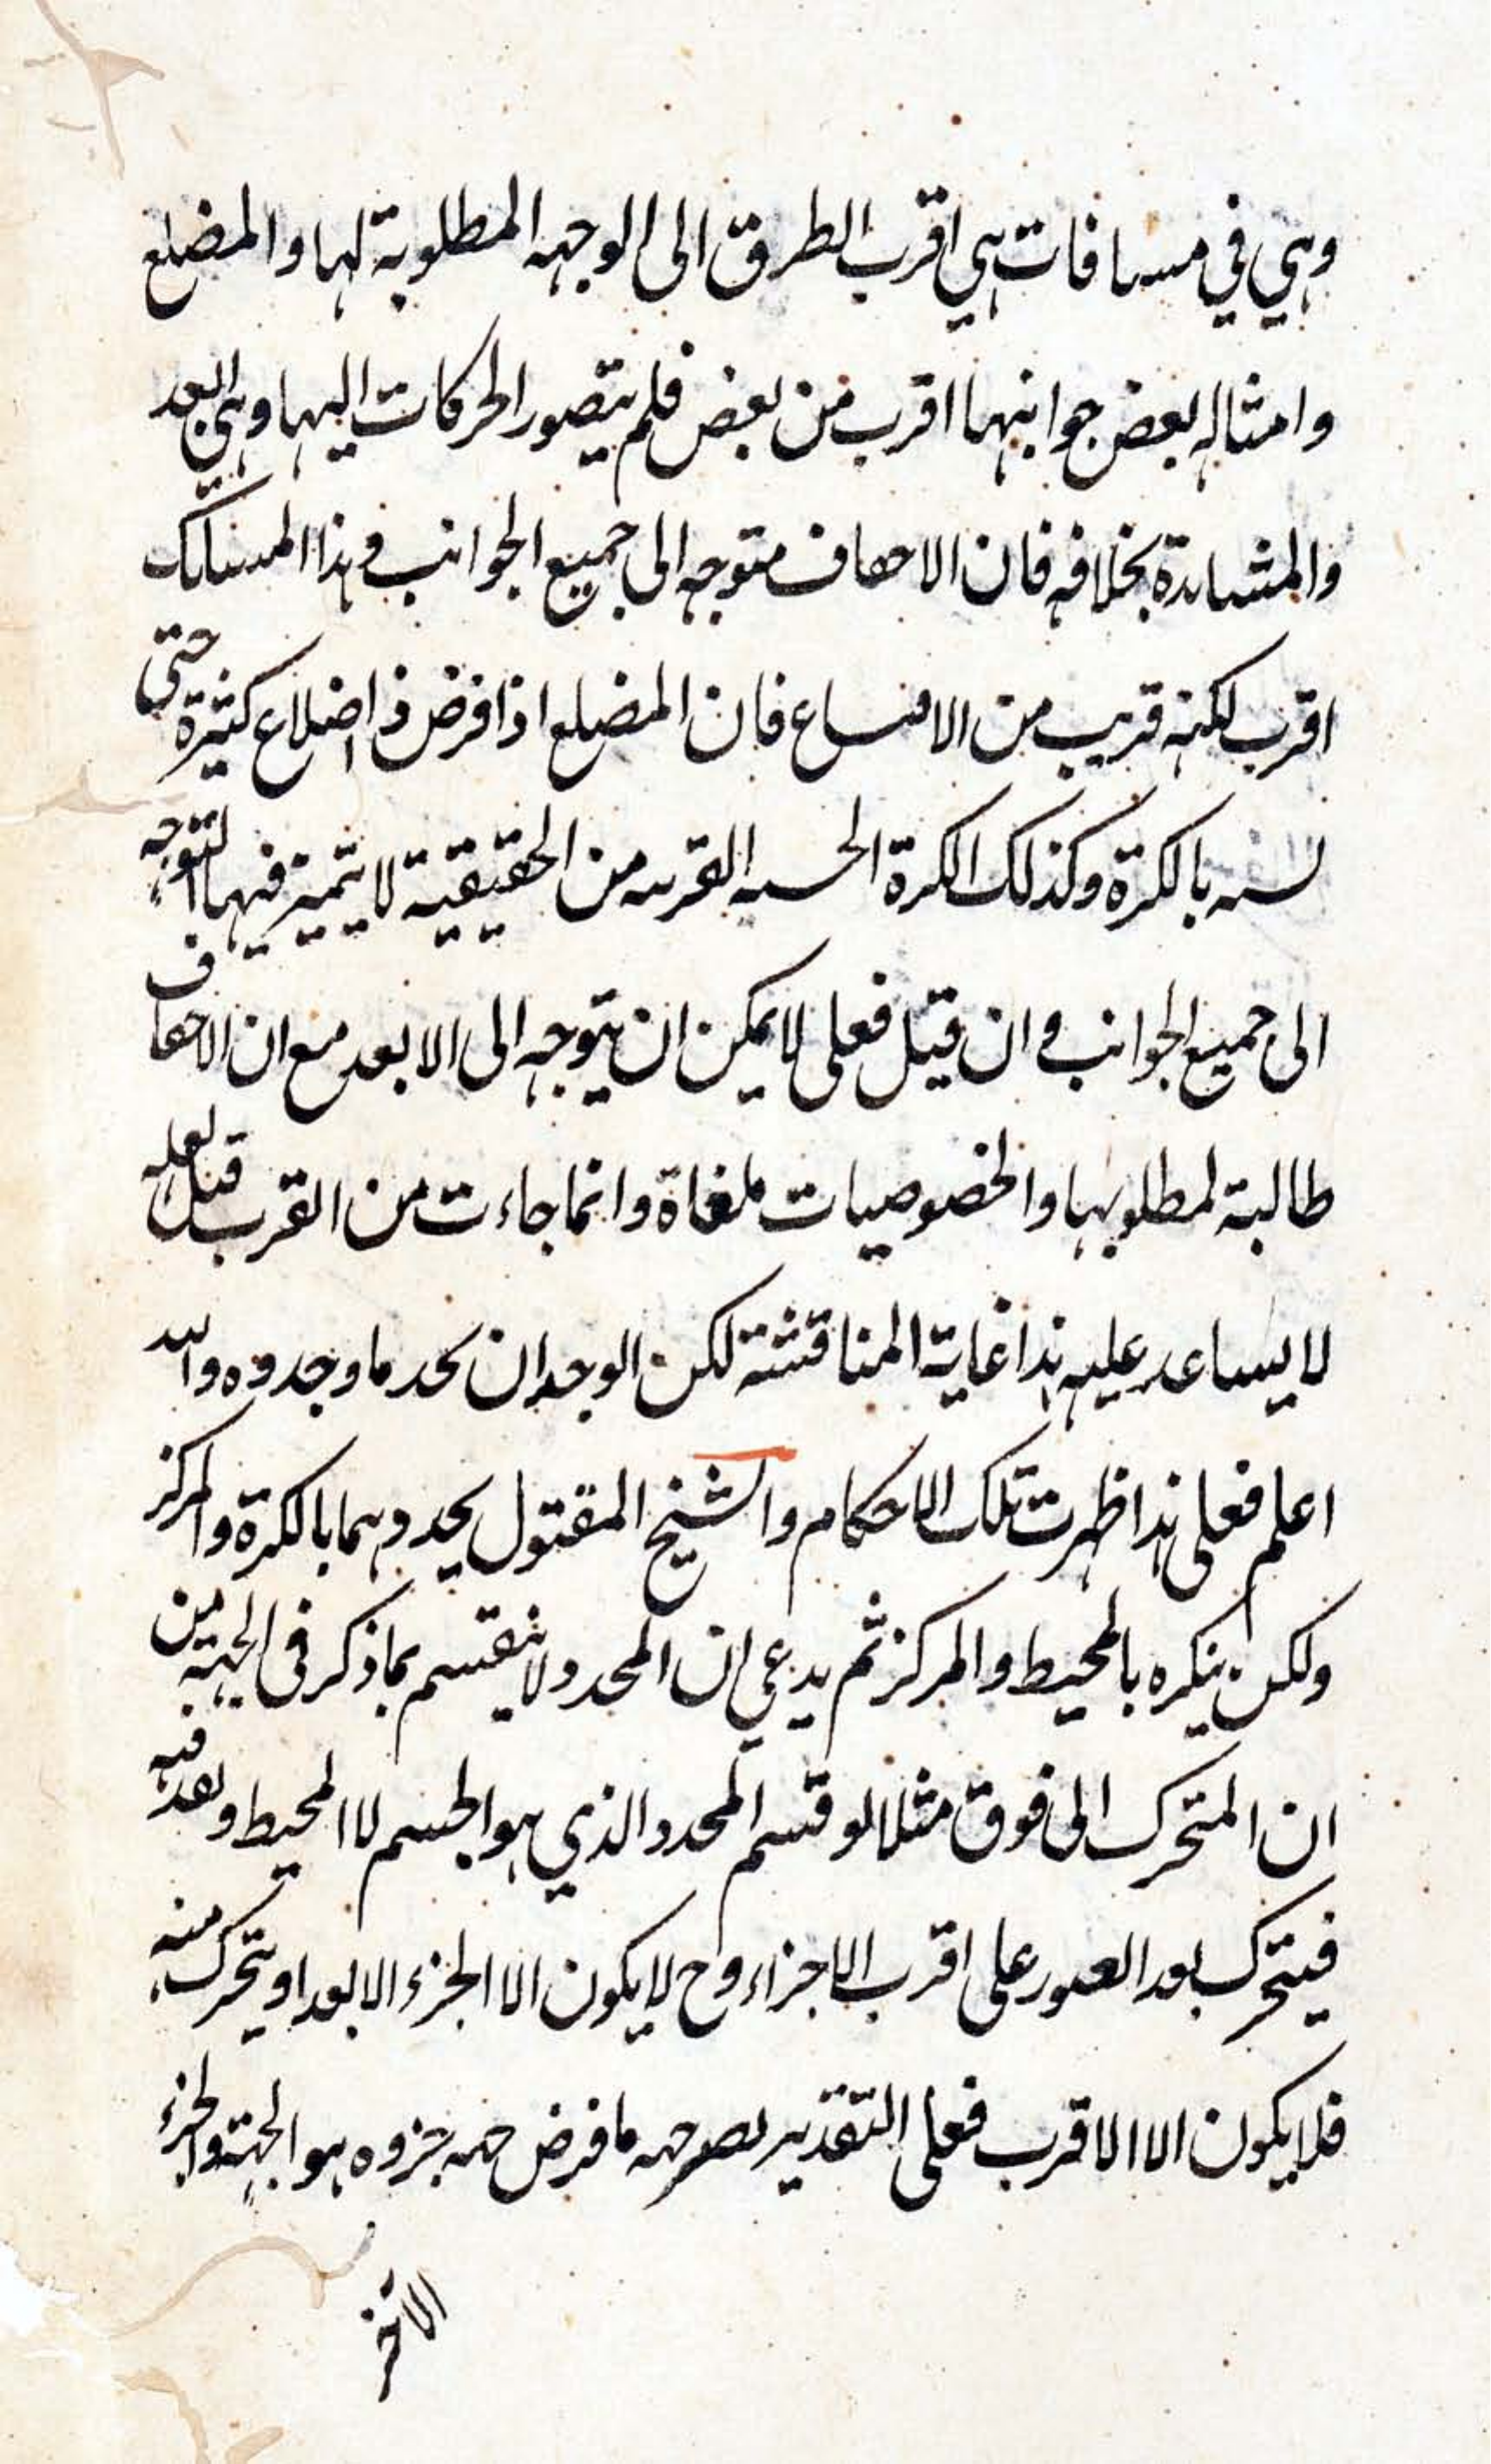 وهي في مسافات هي اقرب الطرق الى الوجهه المطلوبة لها والمضلع
وامثاله بعض جوانبها اقرب من بعض فلم يتصور الحركات اليها وهي ابعد
والمشاهدة بخلافه فان الاحفاف متوجه الى جميع الجوانب وهذا المسالك
اقرب لكنه قريب من الاقناع فان المضلع اذا فرض ذا اضلاع كثيرة حتى
بالكرة وكذلك الكرة الحسيه القريبه من الحقيقية لا يتميز فيها التوجه
الى جميع الجوانب وان قيل فعلى لا يمكن ان يتوجه الى الابعد مع ان الاحفاف
طالبة لمطلوبها والخصوصيات ملغاة وانما جاءت من القرب قبل لعله
لا يساعد عليه هذا غاية المناقشة لكن الوجدان يحد ما وجدوه والله
اعلم فعلى هذا ظهرت تلك الاحكام والشيخ المقتول يحددهما بالكرة والمركز
ولكن ينكره بالمحيط والمركز ثم يدعي ان المحدد لا ينقسم بما ذكر في الجهة من
ان المتحرك الى فوق مثلا لو قسم المحدد الذي هو الجسم لا المحيط وبعد فيه
فيتحرك بعد العبور على اقرب الاجزاء وح لا يكون الا الجزء الابعد او يتحرك منه
فلا يكون الا الاقرب فعلى التقدير ما فرض جهه جزوه هو الجهة والجزء
الاخر